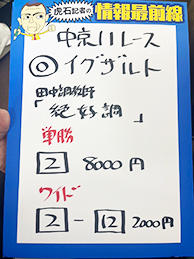 虎石記者の
情報最前線
中京11レース
◎イグザルト
田中調教師
「絶好調」
単勝
2 8000円
ワイド
2-12 2000円